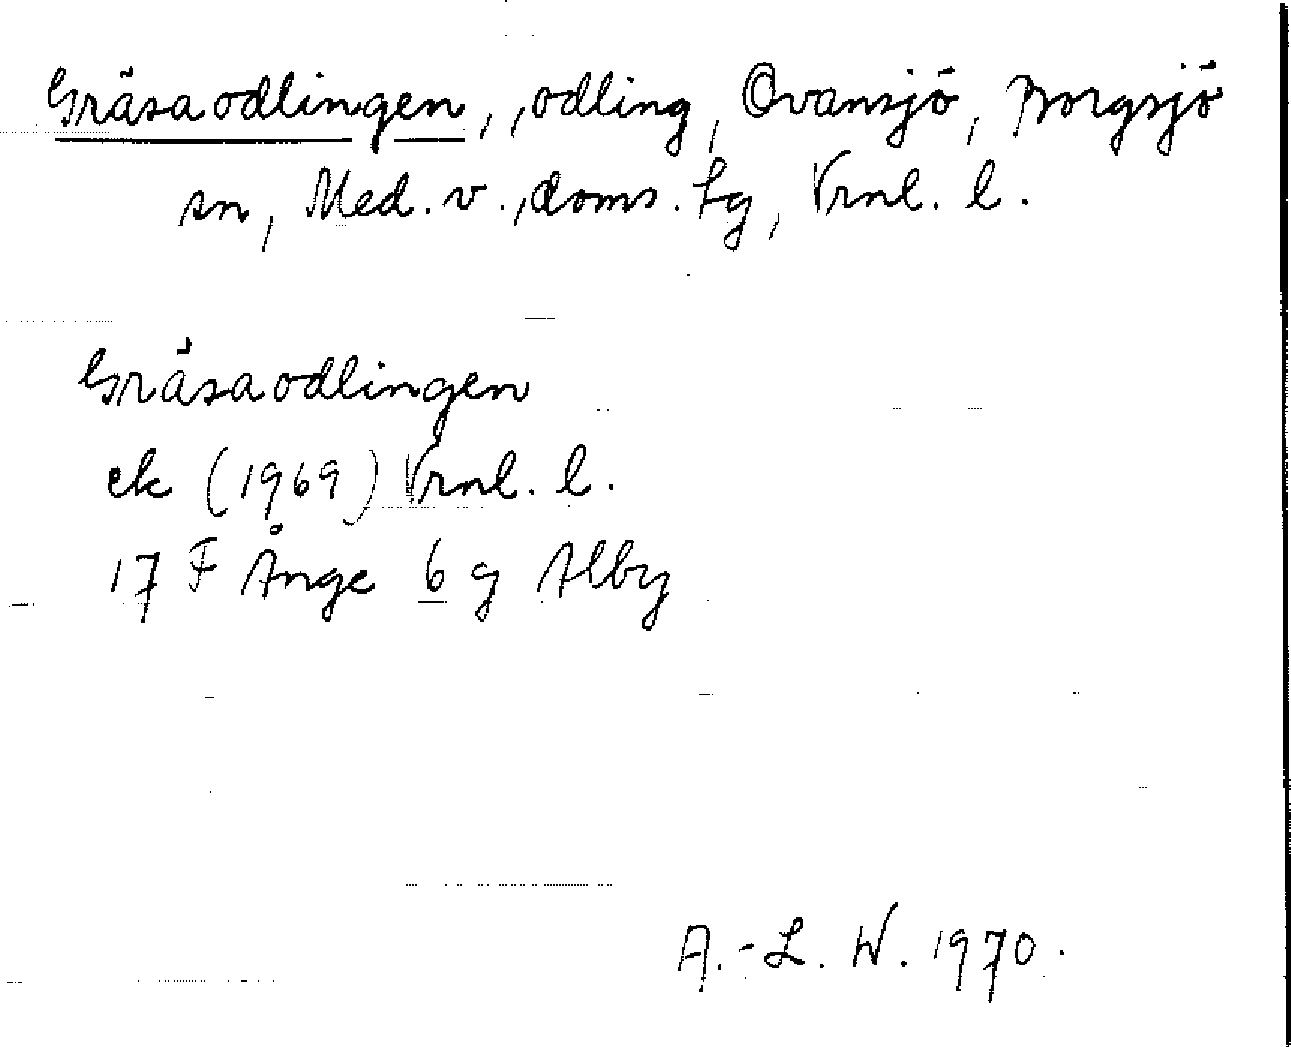 Gräsaodlingen, odling, Ovansjö, Borgsjö
sn, Med. v., doms. tg, Vrnl. l.
Gräsaodlingen
ek (1969) Vrnl. l.
17 F Ånge 6 g Alby
A.-L. W. 1970.